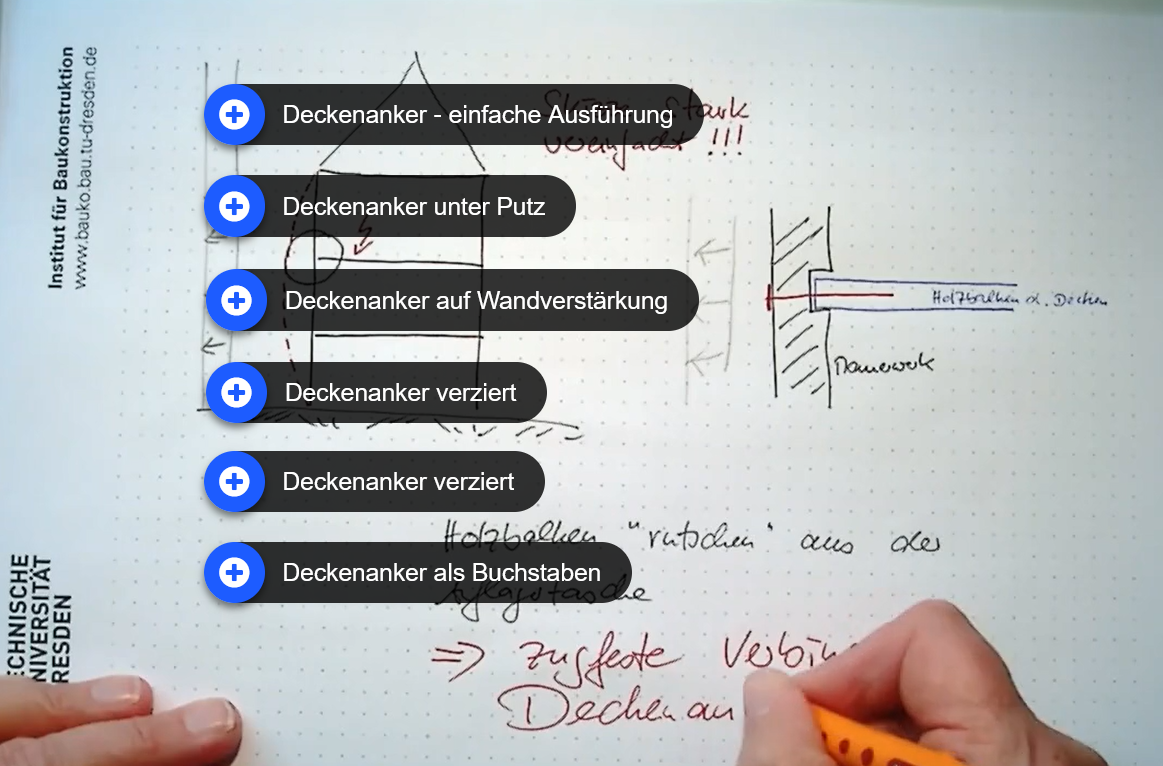 Institut für Baukonstruktion
www.bauko.bau.tu-dresden.de
Deckenanker - einfache Ausführung
stark
vereinfacht !!!
Deckenanker unter Putz
Deckenanker auf Wandverstärkung
Holzbalken d. Decken
Mauerwerk
Deckenanker verziert
Deckenanker verziert
Holzbalken "rutschen" aus der
Deckenanker als Buchstaben
⇒ zugfeste Verbin
Deckenan
ECHNISCHE
NIVERSITÄT
RESDEN